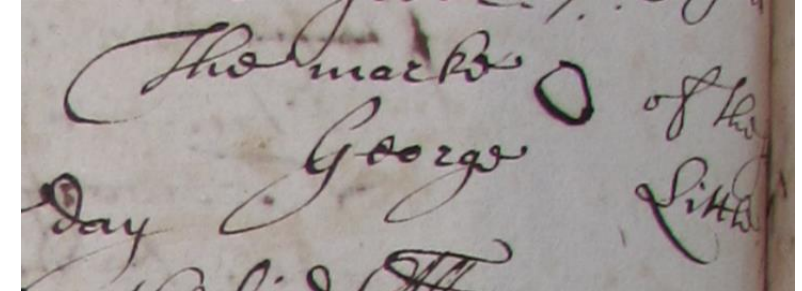 The marke O of the
George Little
day